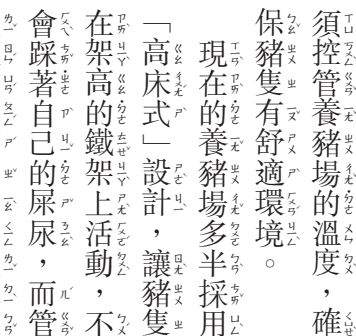 須控管養豬場的溫度，確
保豬隻有舒適環境。
現在的養豬場多半採用
「高床式」設計，讓豬隻
在架高的鐵架上活動，不
會踩著自己的屎尿，而管